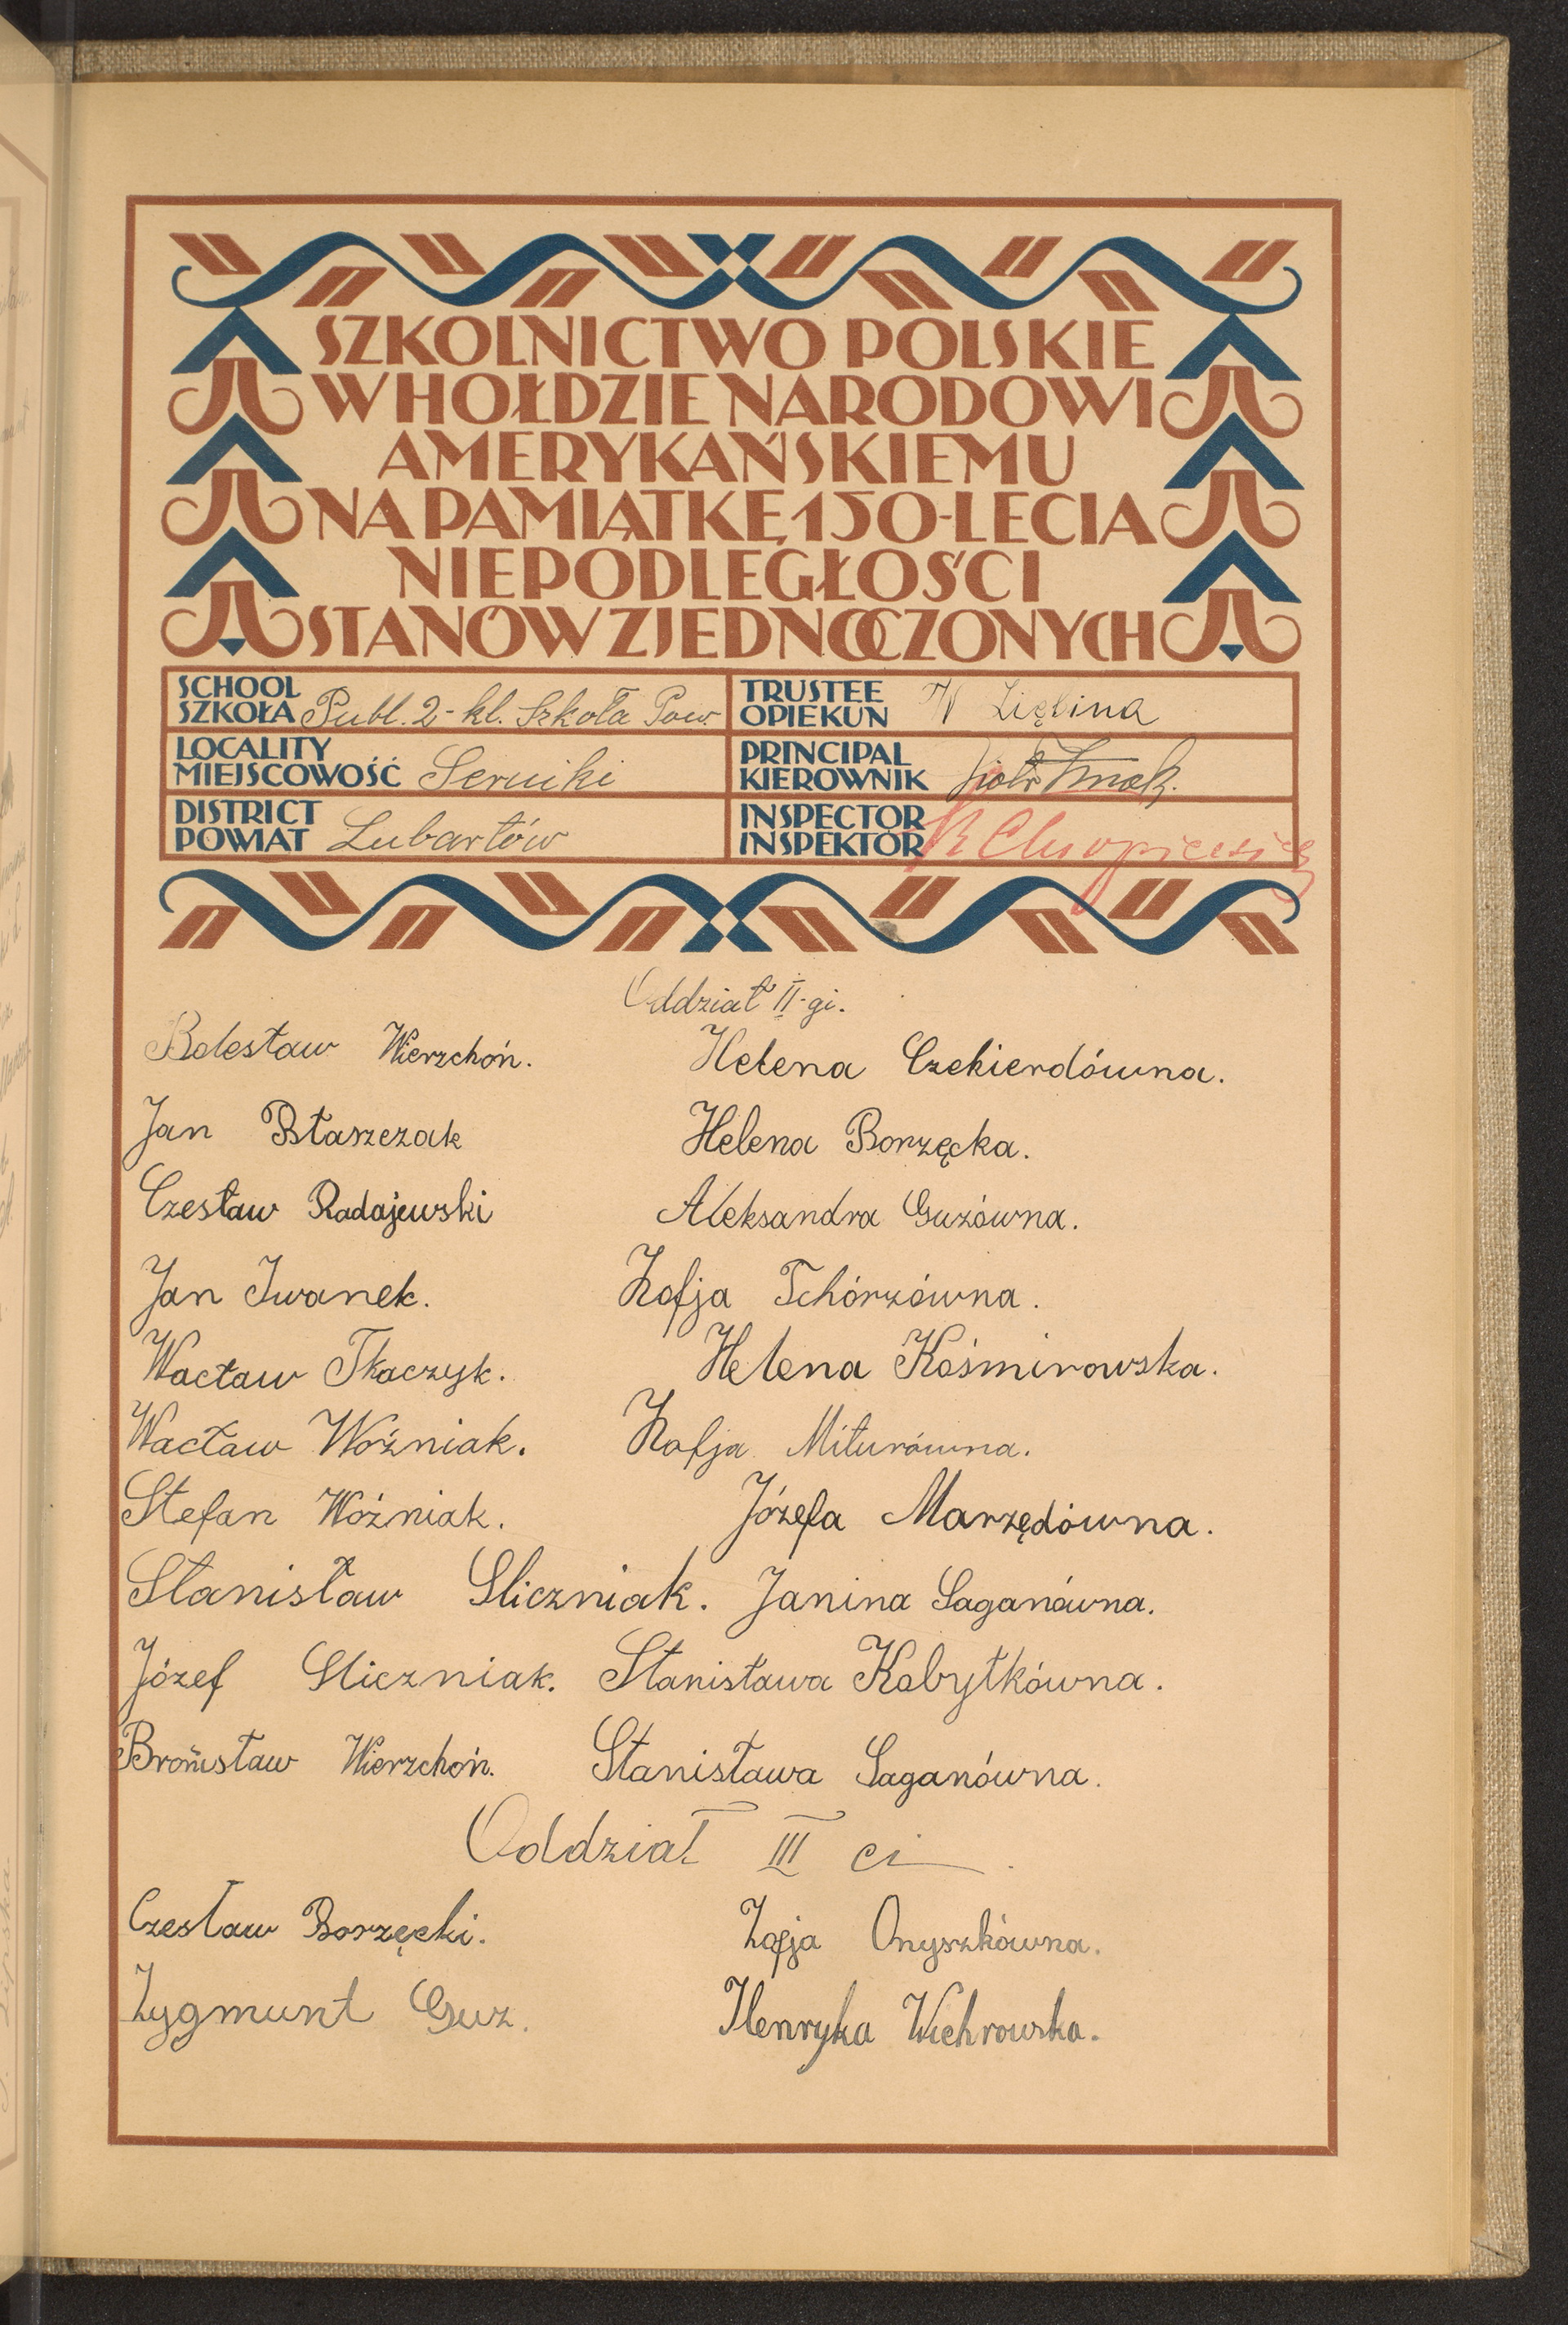 SZKOLNICTWO POLSKIE
W HOŁDZIE NARODOWI
AMERYKAŃSKIEMU
NA PAMIĄTKĘ 150-LECIA
NIEPODLEGŁOŚCI
STANÓW ZJEDNOCZONYCH
SCHOOL
SZKOŁA Publ. 2-kl. Szkoła Pow.
TRUSTEE
OPIEKUN W Ziębina
LOCALITY
MIEJSCOWOŚĆ Serniki
PRINCIPAL
KIEROWNIK Piotr
DISTRICT
POWIAT Lubartów
INSPECTOR
INSPEKTOR
Oddział II-gi.
Bolesław Wierzchoń. Helena Czekierdówna.
Jan Błaszczak Helena Borzęcka.
Czesław Radajewski Aleksandra Guzówna.
Jan Iwanek. Zofja Tchórzówna.
Wacław Tkaczyk. Helena Kośmirowska.
Wacław Woźniak. Zofja Miturówna.
Stefan Woźniak. Józefa Marzędówna.
Stanisław Śliczniak. Janina Saganówna.
Józef Śliczniak. Stanisława Kobyłkówna.
Bronisław Wierzchoń. Stanisława Saganówna.
Oddział III ci
Czesław Borzęcki. Zofja Onyszkówna.
Zygmunt Guz. Henryka Wichrowska.